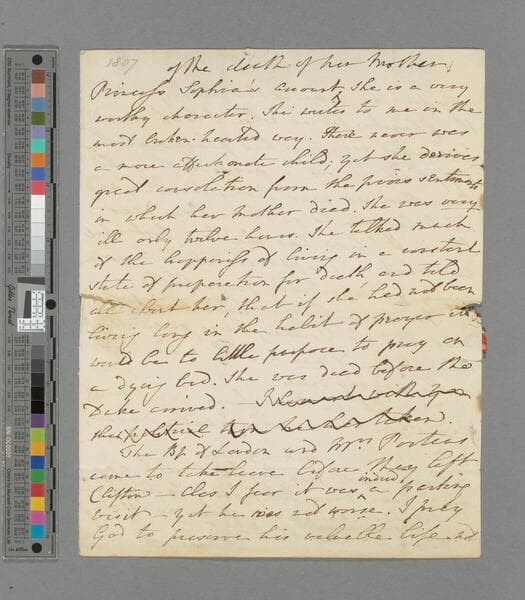 1807
of the death of her Mother,
Princess Sophia's account, She is a very
worthy character. She writes to me in the
most broken-hearted way. There never was
a more affectionate child; yet she derives
great consolation from the pious sentiments
in which her Mother died, She was very
ill only twelve hours. She talked much
of the happiness of living in a constant
state of preparation for death, and told
all about her, that if she had not been
living long in the habit of prayer it
would be to little purpose to pray on
a dying bed. She was dead before the
Duke arrived.
taken.
The Bp. of London and Mrs. Porteus
came to take leave before they left
Clifton – alas I fear it was indeed a parting
visit – yet he was not worse. I pray
God to preserve his valuable life and